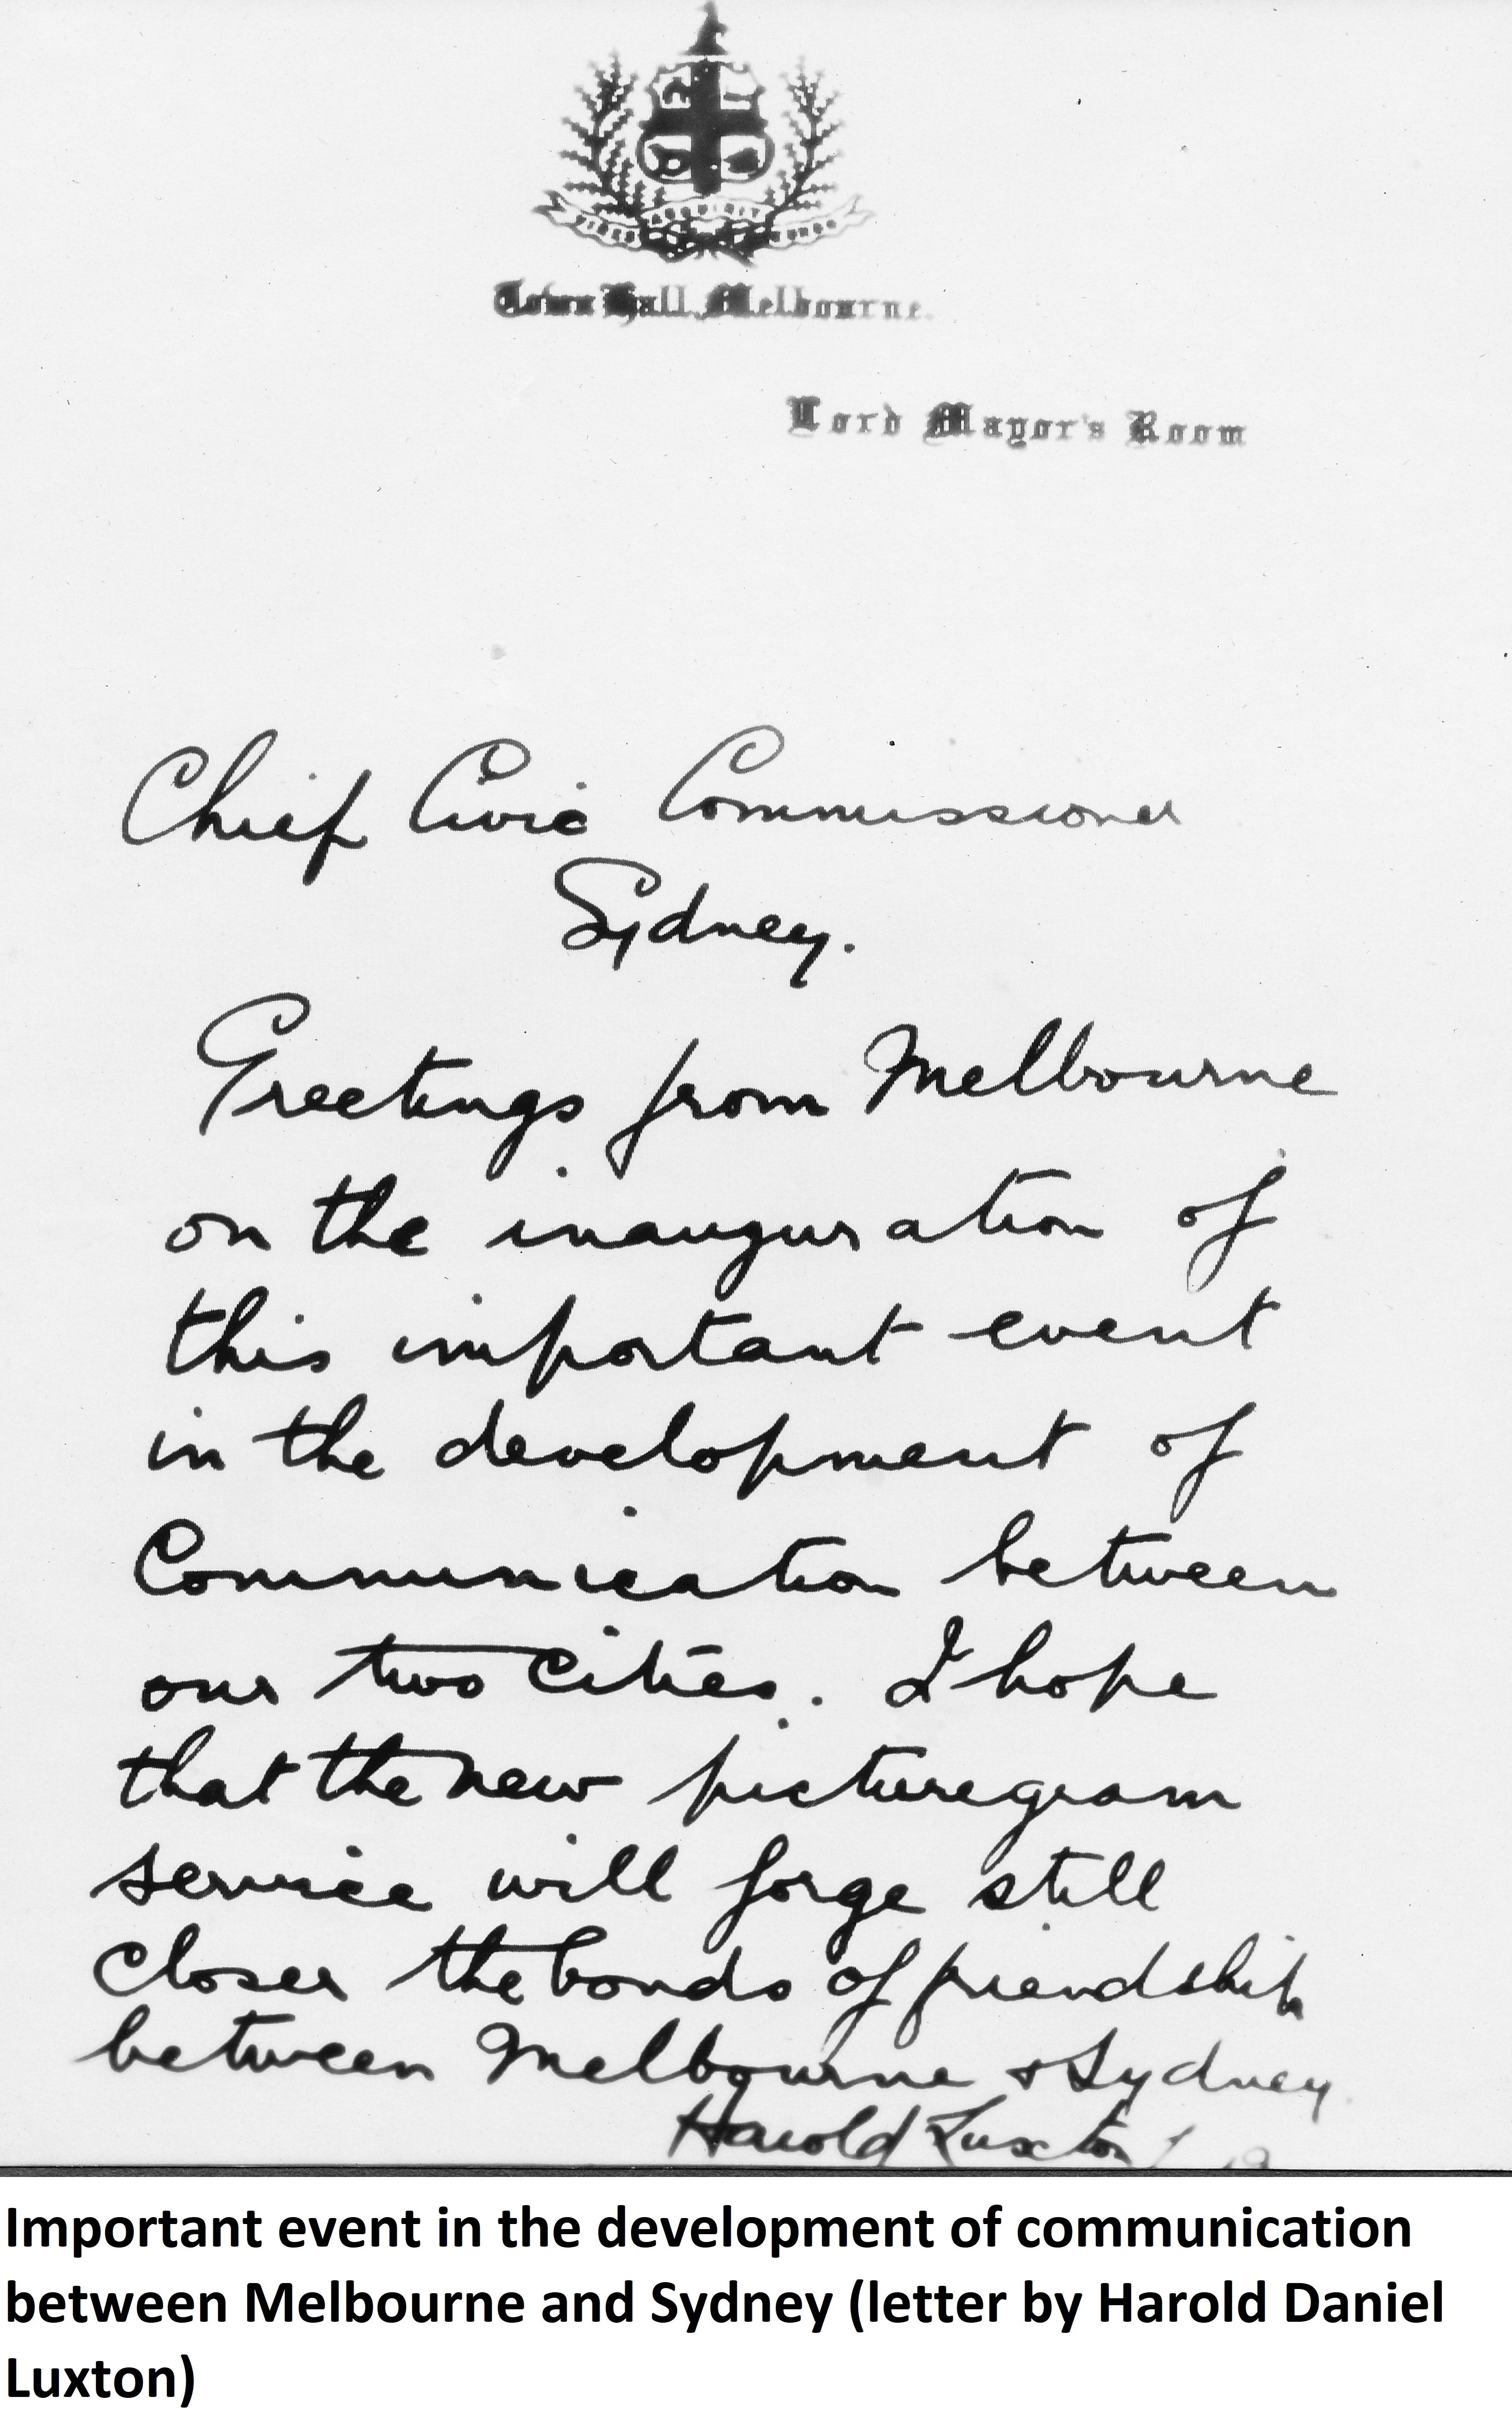 Town Hall, Melbourne.
Lord Mayor's Room
Chief Civic Commissioner
Sydney.
Greetings from Melbourne
on the inauguration of
this important event
in the development of
Communication between
our two Cities. I hope
that the new picturegram
service will forge still
closer the bonds of friendship
between Melbourne & Sydney.
Harold Luxton
Important event in the development of communication
between Melbourne and Sydney (letter by Harold Daniel
Luxton)